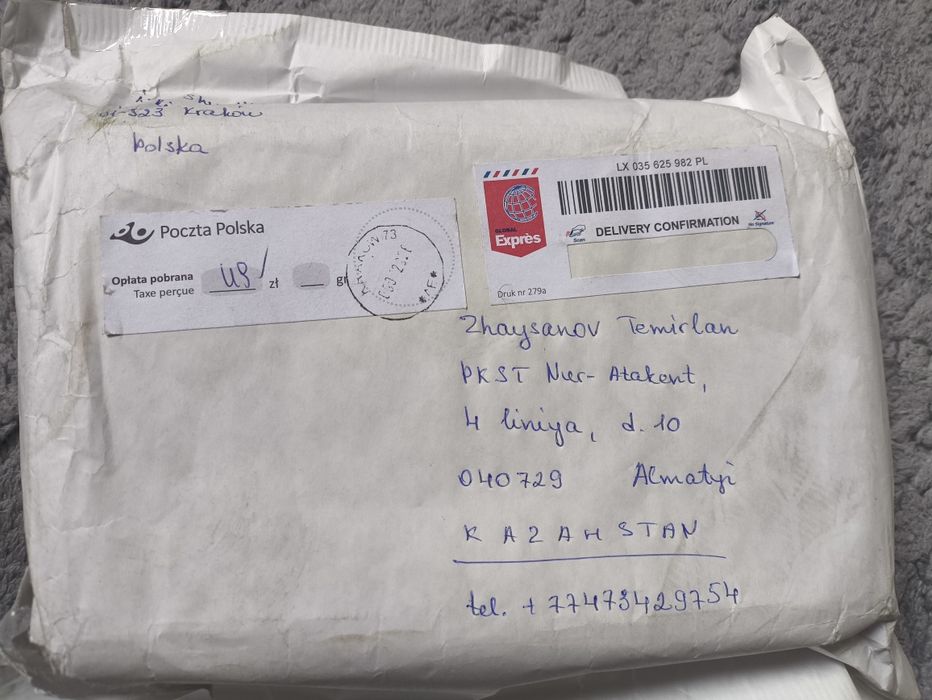 Kraków
Polska
Poczta Polska
Opłata pobrana
Taxe perçue
zł
gr
KRAKÓW 73
LX 035 625 982 PL
GLOBAL
Exprès
Scan
DELIVERY CONFIRMATION
No Signature
Druk nr 279a
Zhaysanov Temirlan
PKST Nur-Atakent,
4 liniya, d. 10
040729 Almatyi
KAZAHSTAN
tel. +77473429754